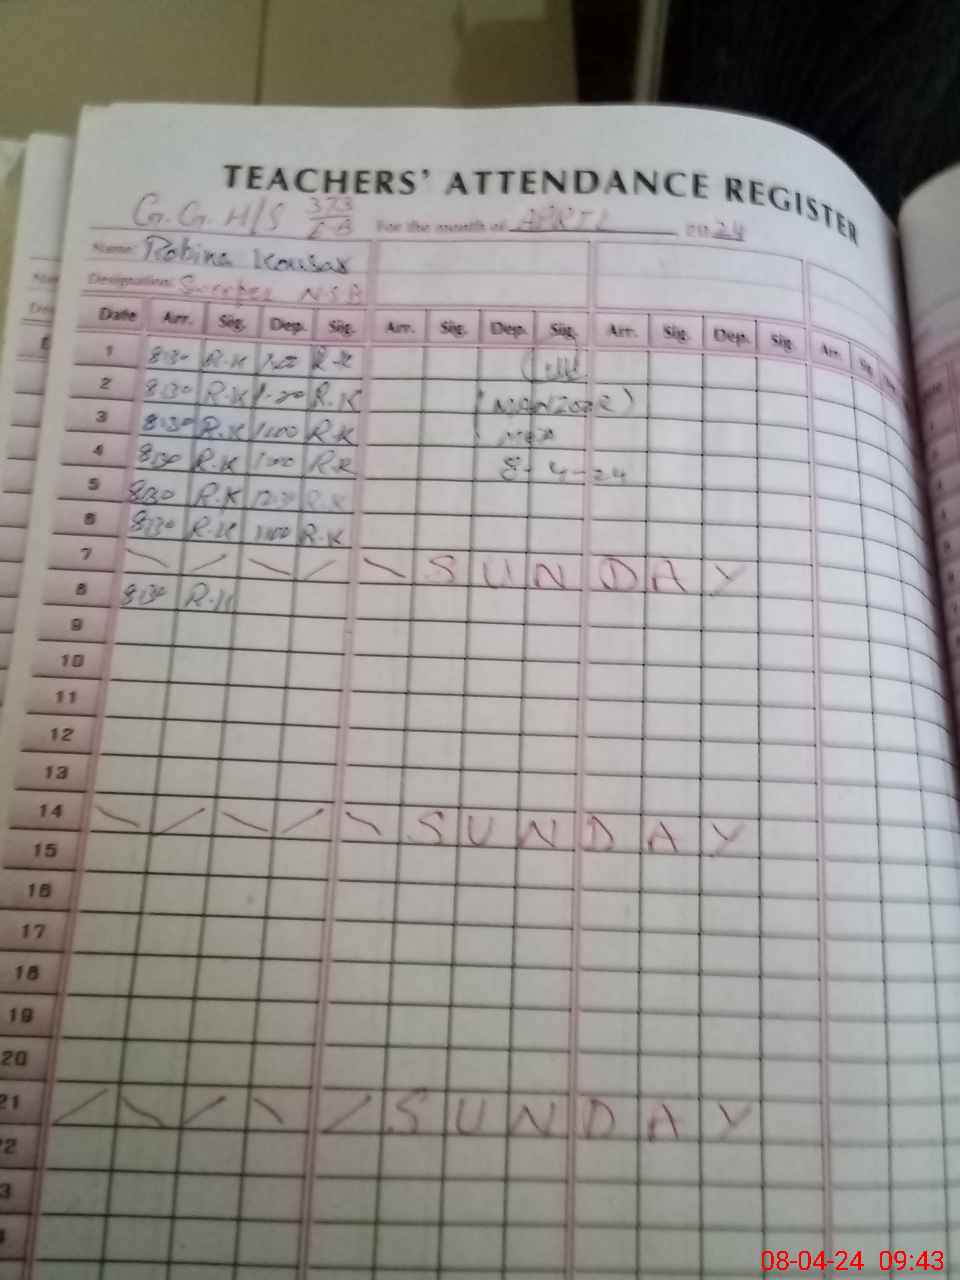 TEACHERS' ATTENDANCE REGISTER
G.G.H/S 373/E.B For the month of APRIL 2024
Name: Robina Kousar
Designation: Sweeper N.S.B
Date Arr. Sig. Dep. Sig. Arr. Sig. Dep. Sig. Arr. Sig. Dep. Sig. Arr. Sig.
1 8:30 R.K 1:00 R.K
2 8:30 R.K 1:00 R.K (MANZOOR)
3 8:30 R.K 1:00 R.K MEA
4 8:30 R.K 1:00 R.K 8-4-24
5 8:30 R.K 12:30 R.K
6 8:30 R.K 1:00 R.K
7 SUNDAY
8 8:30 R.K
9
10
11
12
13
14 SUNDAY
15
16
17
18
19
20
21 SUNDAY
22
3
08-04-24 09:43